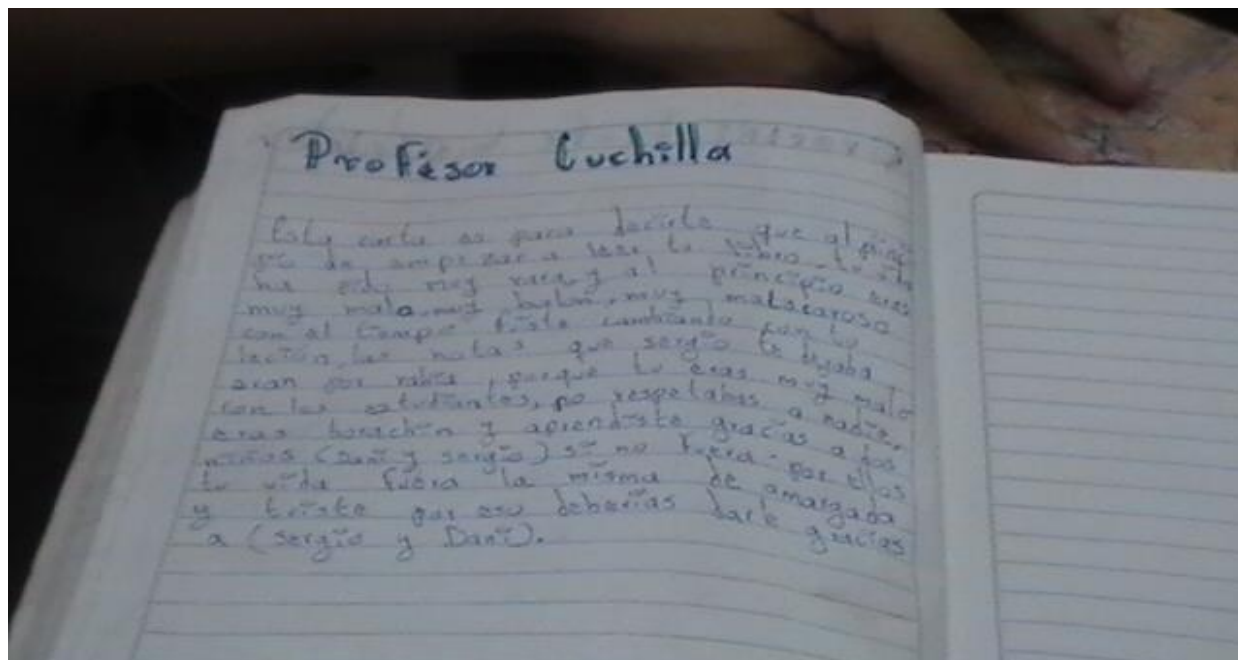 Profesor Cuchilla
Esta carta es para decirle que al princi
pio de empezar a leer tu libro
muy rara y al principio eras
muy malo, muy muy
con el tiempo fuiste cambiando con tu
las notas que sergio te dejaba
eran por rabia, porque tu eras muy malo
con los estudiantes, no respetabas a nadie,
eras borachin y aprendiste gracias a los
niños (Dani y sergio) si no fuera por ellos
tu vida fuera la misma de amargada
y triste por eso deberias darle gracias
a (sergio y Dani).